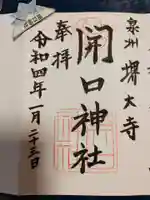 泉州 堺大寺
開口神社
奉拝
令和四年一月二十三日